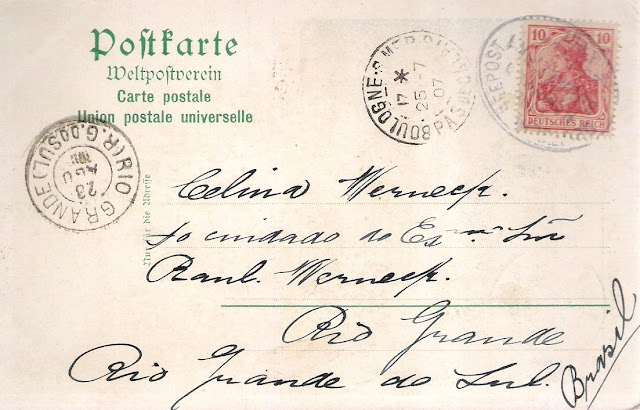 Postkarte
Weltpostverein
Carte postale
Union postale universelle
Nur für die Adresse
10 10
DEUTSCHES REICH
BOULOGNE-S-MER
PAS DE CALAIS
17 * 25-7 07
SEEPOST
RIO GRANDE (R.G. DO SUL)
23 AGO
Celina Werneck.
Ao cuidado do Exmo Snr
Raul. Werneck.
Rio Grande
Rio Grande do Sul.
Brasil